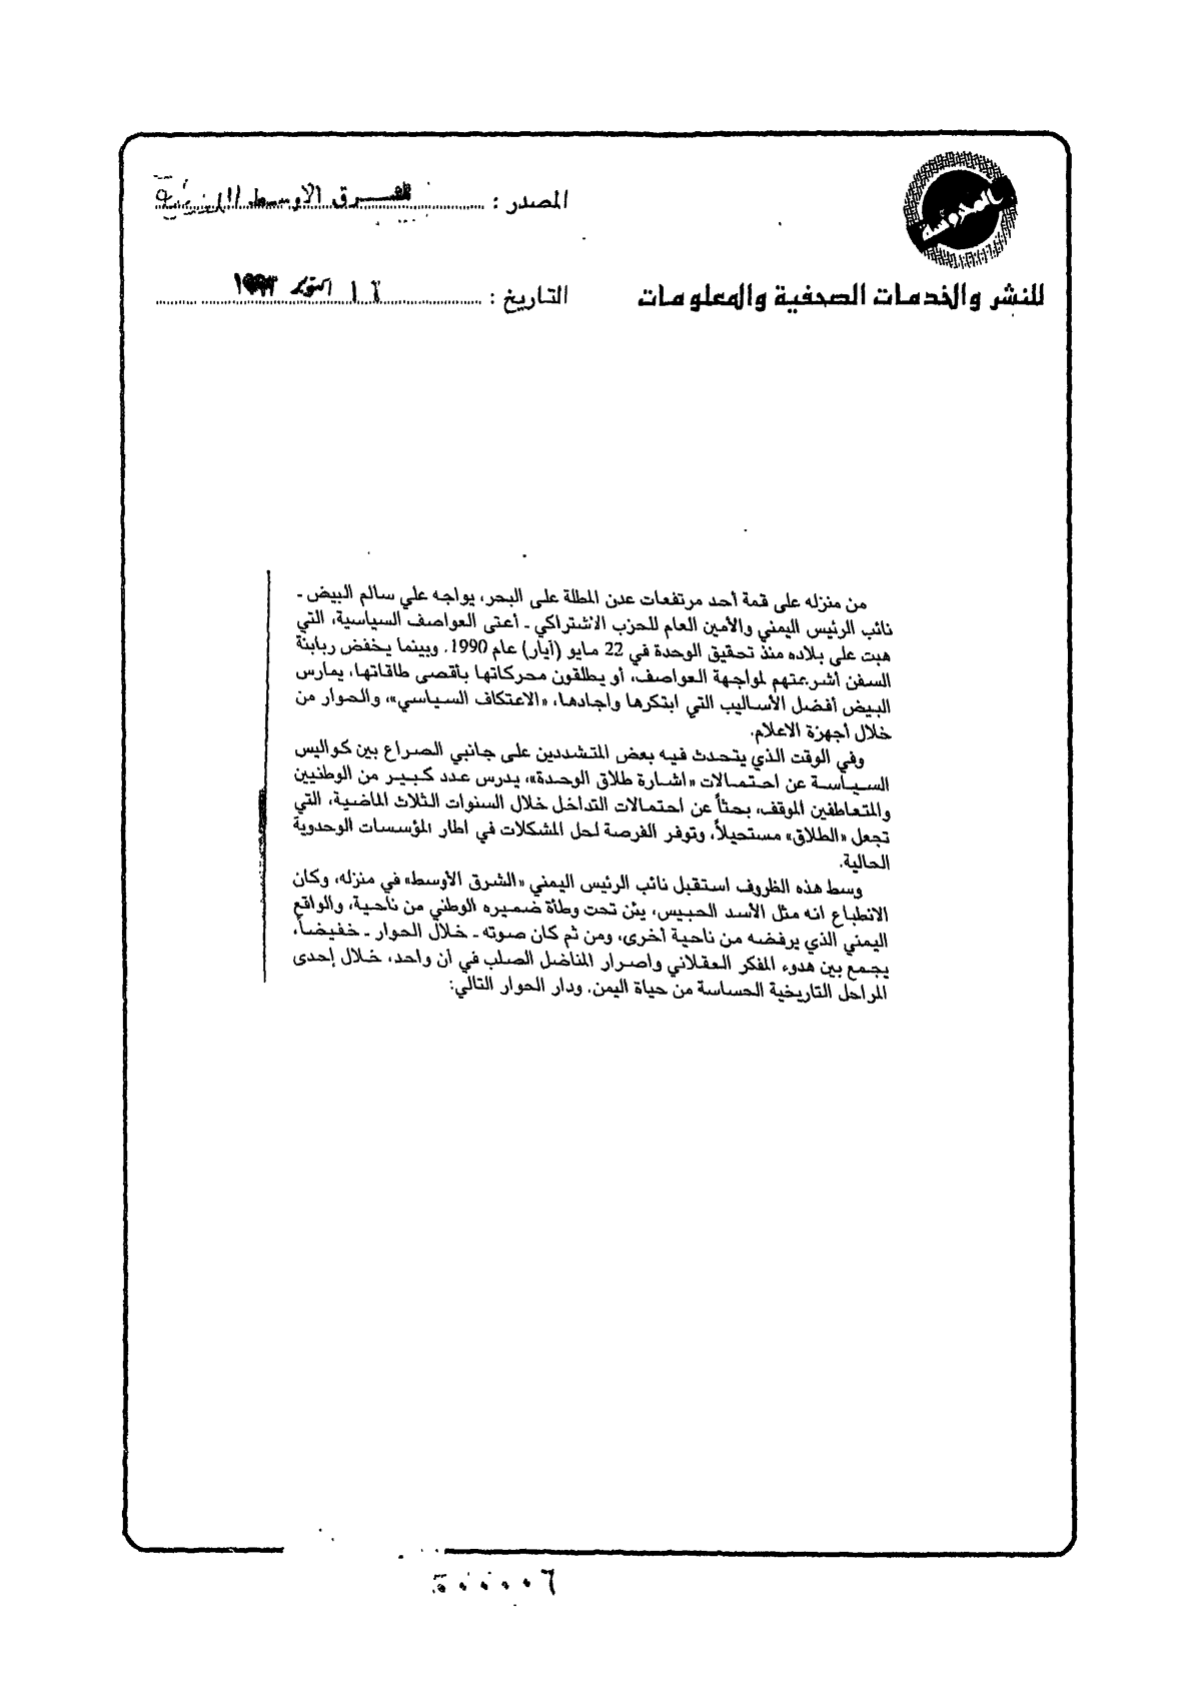 المحروسة
المصدر : الشرق الاوسط اللندنية
للنشر والخدمات الصحفية والمعلومات
التاريخ : ١٦ اكتوبر ١٩٩٣
من منزله على قمة أحد مرتفعات عدن المطلة على البحر، يواجه علي سالم البيض ـ
نائب الرئيس اليمني والأمين العام للحزب الاشتراكي ـ أعتى العواصف السياسية، التي
هبت على بلاده منذ تحقيق الوحدة في 22 مايو (أيار) عام 1990. وبينما يخفض ربابنة
السفن أشرعتهم لمواجهة العواصف، أو يطلقون محركاتها بأقصى طاقاتها، يمارس
البيض أفضل الأساليب التي ابتكرها وأجادها، «الاعتكاف السياسي»، والحوار من
خلال أجهزة الاعلام.
وفي الوقت الذي يتحدث فيه بعض المتشددين على جانبي الصراع بين كواليس
السياسة عن احتمالات «اشارة طلاق الوحدة»، يدرس عدد كبير من الوطنيين
والمتعاطفين الموقف، بحثاً عن احتمالات التداخل خلال السنوات الثلاث الماضية، التي
تجعل «الطلاق» مستحيلاً، وتوفر الفرصة لحل المشكلات في اطار المؤسسات الوحدوية
الحالية.
وسط هذه الظروف استقبل نائب الرئيس اليمني «الشرق الأوسط» في منزله، وكان
الانطباع انه مثل الأسد الحبيس، يئن تحت وطأة ضميره الوطني من ناحية، والواقع
اليمني الذي يرفضه من ناحية أخرى، ومن ثم كان صوته ـ خلال الحوار ـ خفيضاً،
يجمع بين هدوء المفكر العقلاني واصرار المناضل الصلب في آن واحد، خلال إحدى
المراحل التاريخية الحساسة من حياة اليمن. ودار الحوار التالي: